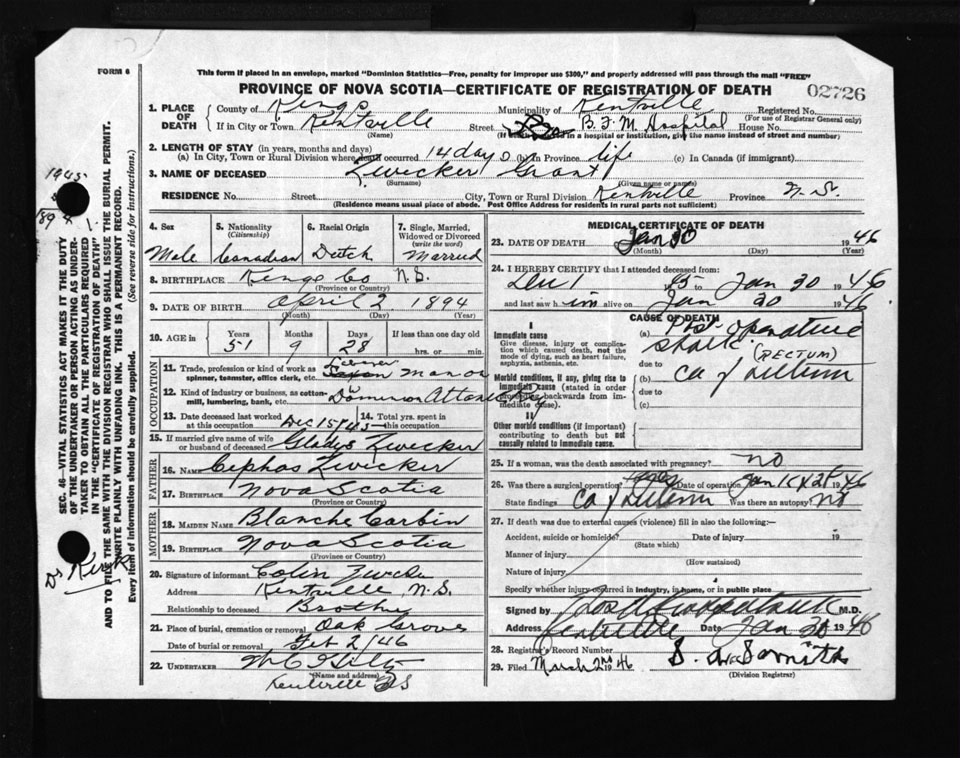 FORM 6
This form if placed in an envelope, marked "Dominion Statistics—Free, penalty for improper use $300," and properly addressed will pass through the mail "FREE"
PROVINCE OF NOVA SCOTIA—CERTIFICATE OF REGISTRATION OF DEATH
02726
1. PLACE OF DEATH County of Kings Municipality of Kentville Registered No.
(For use of Registrar General only)
If in City or Town Kentville Street B. F. M Hospital House No.
(Name) (If death occurred in a hospital or institution, give the name instead of street and number)
2. LENGTH OF STAY (in years, months and days)
(a) In City, Town or Rural Division where death occurred 14 days (b) in Province life (c) In Canada (if immigrant)
3. NAME OF DECEASED Zwicker Grant
(Surname) (Given name or names)
RESIDENCE No. Street City, Town or Rural Division Kentville Province N. S.
(Residence means usual place of abode. Post Office Address for residents in rural parts not sufficient)
4. Sex 5. Nationality (Citizenship) 6. Racial Origin 7. Single, Married, Widowed or Divorced (write the word)
Male Canadian Dutch Married
8. BIRTHPLACE Kings Co N.S.
(Province or Country)
9. DATE OF BIRTH April 2 1894
(Month) (Day) (Year)
10. AGE in Years Months Days If less than one day old
51 9 28 hrs. or min.
OCCUPATION
11. Trade, profession or kind of work as spinner, teamster, office clerk, etc. Manor
12. Kind of industry or business, as cotton-mill, lumbering, bank, etc. Dominion
13. Date deceased last worked at this occupation Dec 15/45 14. Total yrs. spent in this occupation
15. If married give name of wife or husband of deceased Gladys Zwicker
FATHER
16. NAME Cephas Zwicker
17. BIRTHPLACE Nova Scotia
(Province or Country)
MOTHER
18. MAIDEN NAME Blanche Corbin
19. BIRTHPLACE Nova Scotia
(Province or Country)
20. Signature of informant Colin Zwicker
Address Kentville, N.S.
Relationship to deceased Brother
21. Place of burial, cremation or removal Oak Grove
Date of burial or removal Feb 2/46
22. UNDERTAKER
(Name and address)
Kentville NS
MEDICAL CERTIFICATE OF DEATH
23. DATE OF DEATH Jan 30 1946
(Month) (Day) (Year)
24. I HEREBY CERTIFY that I attended deceased from:
Dec 1 45 to Jan 30 1946
and last saw h im alive on Jan 30 1946.
CAUSE OF DEATH
I
Immediate cause
Give disease, injury or complication which caused death, not the mode of dying, such as heart failure, asphyxia, asthenia, etc.
(a) Post-operative
shock (RECTUM)
due to
Morbid conditions, if any, giving rise to immediate cause (stated in order proceeding backwards from immediate cause).
(b) Ca of rectum
due to
(c)
II
Other morbid conditions (if important) contributing to death but not causally related to immediate cause.
25. If a woman, was the death associated with pregnancy? no
26. Was there a surgical operation? Date of operation Jan 1946
State findings Ca of rectum Was there an autopsy? no
27. If death was due to external causes (violence) fill in also the following:—
Accident, suicide or homicide? Date of injury 19
(State which)
Manner of injury
(How sustained)
Nature of injury
Specify whether injury occurred in industry, in home, or in public place
Signed by M.D.
Address Kentville Date Jan 30 1946
28. Registrar's Record Number
29. Filed March 2nd 1946
(Division Registrar)
SEC. 46—VITAL STATISTICS ACT MAKES IT THE DUTY OF THE UNDERTAKER OR PERSON ACTING AS UNDERTAKER TO OBTAIN ALL THE PARTICULARS REQUIRED IN THE "CERTIFICATE OF REGISTRATION OF DEATH" AND TO FILE THE SAME WITH THE DIVISION REGISTRAR WHO SHALL ISSUE THE BURIAL PERMIT.
WRITE PLAINLY WITH UNFADING INK. THIS IS A PERMANENT RECORD.
Every item of information should be carefully supplied. (See reverse side for instructions.)
1945